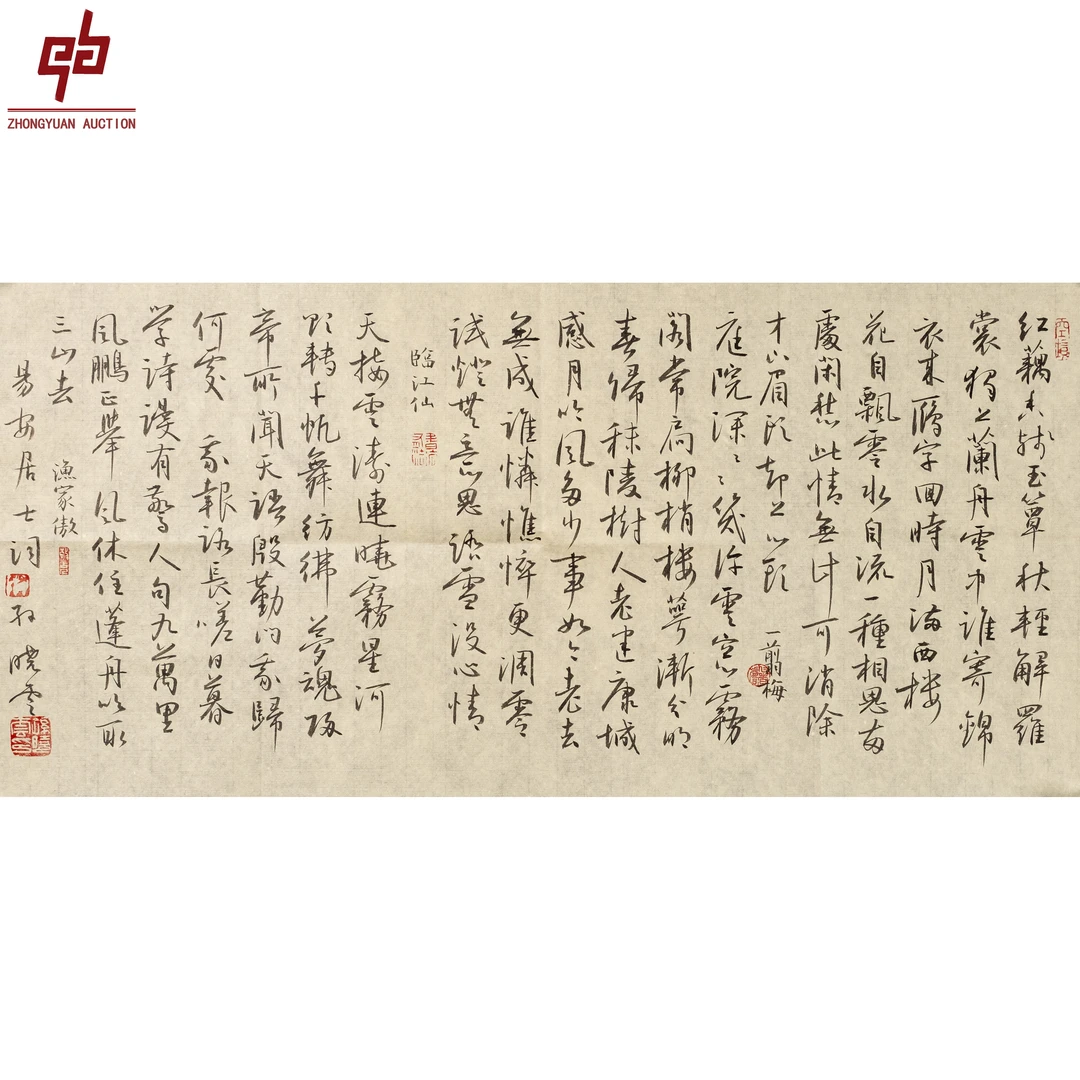 ZHONGYUAN AUCTION
红藕香残玉簟秋輕解羅
裳獨上蘭舟雲中誰寄錦
書来雁字回時月滿西楼
花自飄零水自流一種相思兩
處閑愁此情無計可消除
才下眉頭却上心頭
一翦梅
庭院深〻幾許雲窓霧
閣常扃柳梢梅萼漸分明
春歸秣陵樹人老建康城
感月吟風多少事如今老去
無成誰憐憔悴更凋零
試燈無意思踏雪没心情
臨江仙
天接雲濤連曉霧星河
欲轉千帆舞彷彿夢魂歸
帝所聞天語殷勤问我歸
何處 我報路長嗟日暮
学詩謾有驚人句九萬里
風鵬正舉風休住蓬舟吹取
三山去
漁家傲
易安居士詞
孫曉雲
孫曉雲印